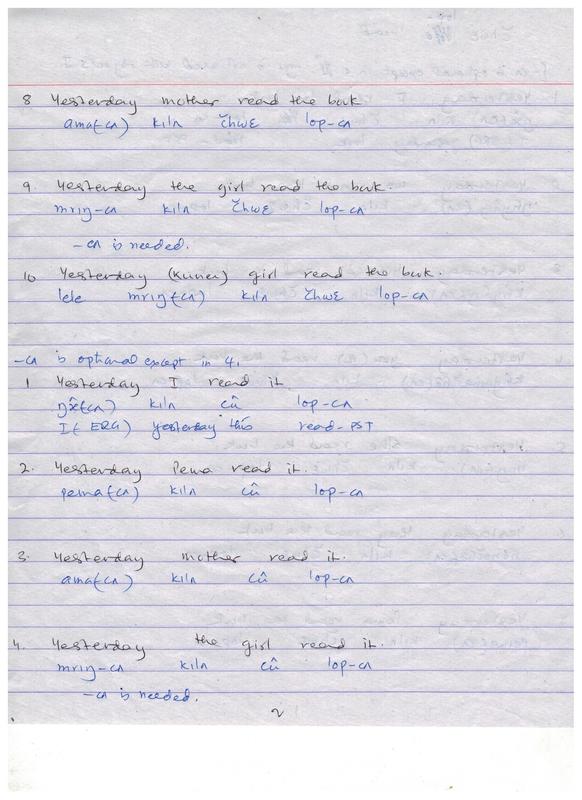 8 Yesterday mother read the book
ama(-cʌ) kilʌ čhwɛ lop-cʌ
9. Yesterday the girl read the book.
mriŋ-cʌ kilʌ čhwɛ lop-cʌ
-cʌ is needed.
10 Yesterday girl read the book.
lele mriŋ(-cʌ) kilʌ čhwɛ lop-cʌ
-cʌ is optional except in 4.
1 Yesterday I read it.
(cʌ) kilʌ cû lop-cʌ
I(-ERG) yesterday this read-PST
2. Yesterday Pema read it.
pema(-cʌ) kilʌ cû lop-cʌ
3. Yesterday mother read it.
ama(-cʌ) kilʌ cû lop-cʌ
4. Yesterday the girl read it.
mriŋ-cʌ kilʌ cû lop-cʌ
-cʌ is needed.
2